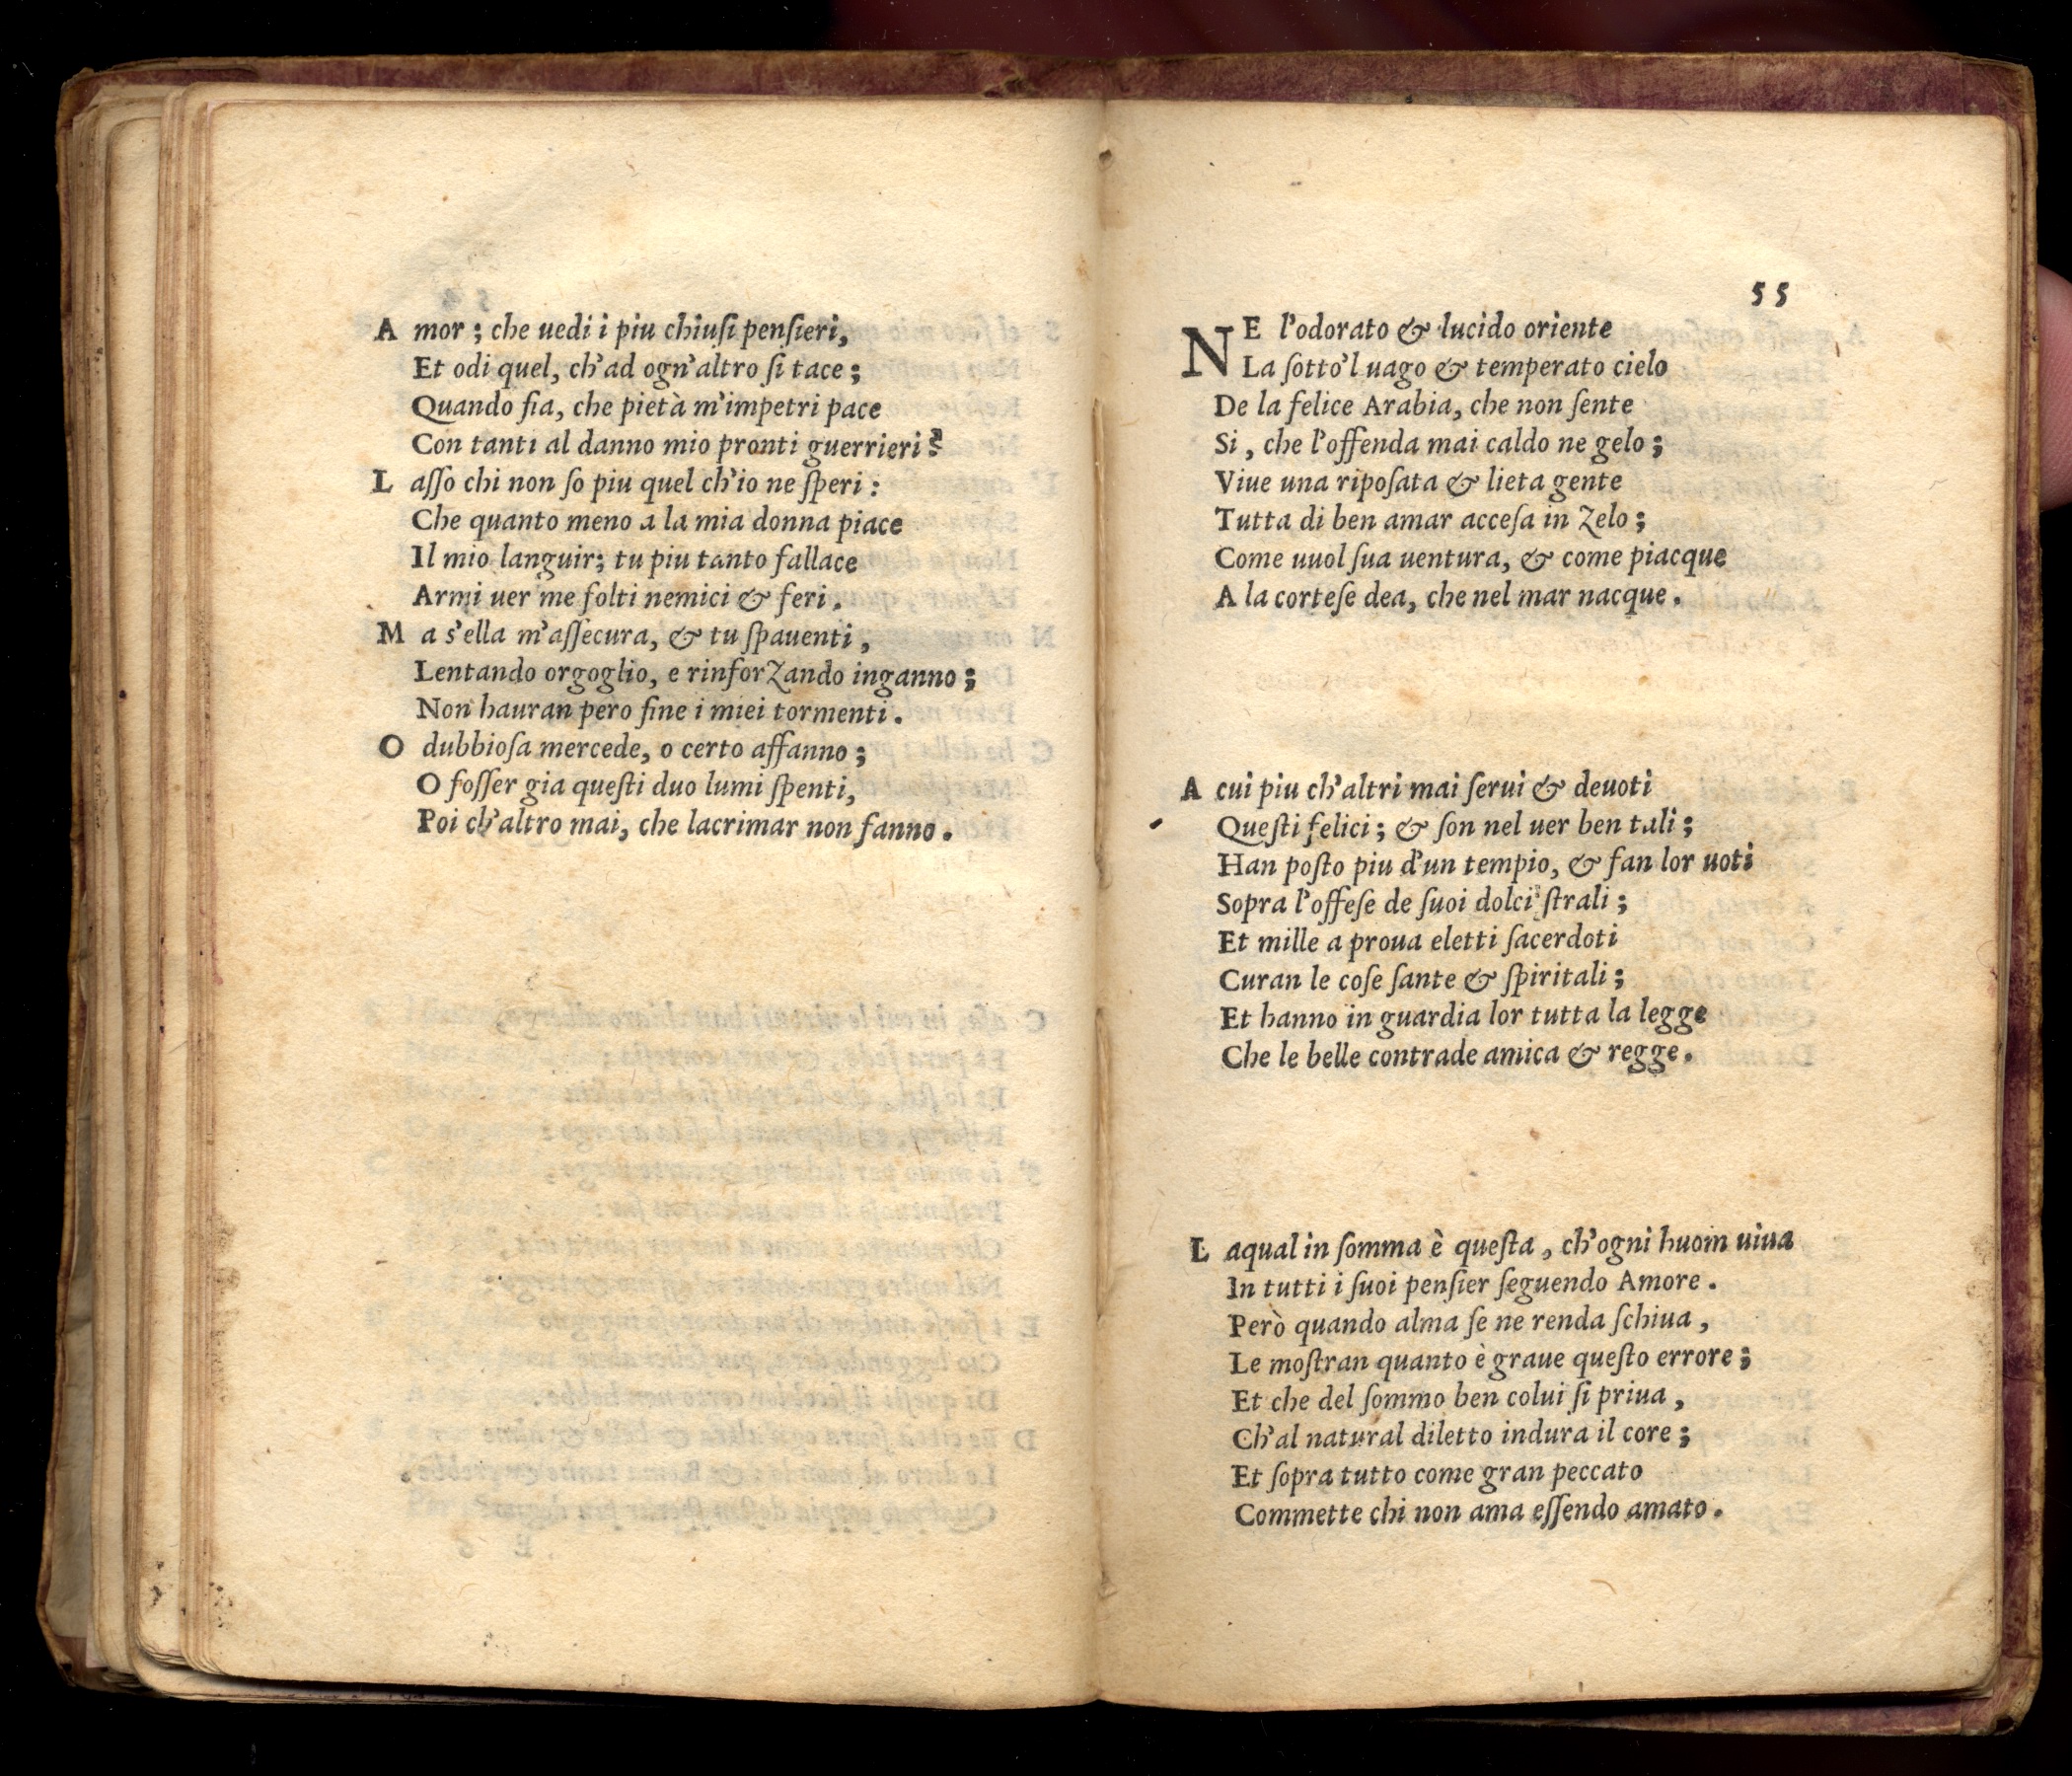 A mor ; che uedi i piu chiuſi penſieri,
Et odi quel, ch'ad ogn'altro ſi tace ;
Quando fia, che pietà m'impetri pace
Con tanti al danno mio pronti guerrieri?
L aſſo chi non ſo piu quel ch'io ne ſperi :
Che quanto meno a la mia donna piace
Il mio languir; tu piu tanto fallace
Armi uer me folti nemici & feri .
M a s'ella m'aſſecura, & tu ſpauenti ,
Lentando orgoglio, e rinforzando inganno ;
Non hauran pero fine i miei tormenti .
O dubbioſa mercede, o certo affanno ;
O foſſer gia queſti duo lumi ſpenti,
Poi ch'altro mai, che lacrimar non fanno .
55
NE l'odorato & lucido oriente
La ſotto'l uago & temperato cielo
De la felice Arabia, che non ſente
Si , che l'offenda mai caldo ne gelo ;
Viue una ripoſata & lieta gente
Tutta di ben amar acceſa in zelo ;
Come uuol ſua uentura, & come piacque
A la corteſe dea, che nel mar nacque .
A cui piu ch'altri mai ſerui & deuoti
Queſti felici ; & ſon nel uer ben tali ;
Han poſto piu d'un tempio, & fan lor uoti
Sopra l'offeſe de ſuoi dolci ſtrali ;
Et mille a proua eletti ſacerdoti
Curan le coſe ſante & ſpiritali ;
Et hanno in guardia lor tutta la legge
Che le belle contrade amica & regge .
L aqual in ſomma è queſta , ch'ogni huom uiua
In tutti i ſuoi penſier ſeguendo Amore .
Però quando alma ſe ne renda ſchiua ,
Le moſtran quanto è graue queſto errore ;
Et che del ſommo ben colui ſi priua ,
Ch'al natural diletto indura il core ;
Et ſopra tutto come gran peccato
Commette chi non ama eſſendo amato .